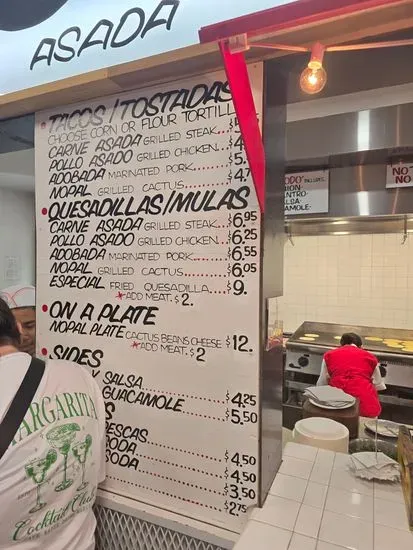 ASADA
TACOS/TOSTADAS
CHOOSE CORN OR FLOUR TORTILL
CARNE ASADA GRILLED STEAK
POLLO ASADO GRILLED CHICKEN
ADOBADA MARINATED PORK
NOPAL GRILLED CACTUS 4.7
QUESADILLAS/MULAS
CARNE ASADA GRILLED STEAK $6.95
POLLO ASADO GRILLED CHICKEN $6.25
ADOBADA MARINATED PORK $6.55
NOPAL GRILLED CACTUS $6.05
ESPECIAL FRIED QUESADILLA $9.
*ADD MEAT. $2.
ON A PLATE
NOPAL PLATE CACTUS BEANS CHEESE $12.
*ADD MEAT. $2
SIDES
SALSA $4.25
GUACAMOLE $5.50
S
ESCAS $4.50
ODA $4.50
SODA $3.50
$2.75
ODO" INCLUDES
ION
ANTRO
LDA
AMOLE
NO
NO
MARGARITA
Cocktail Club